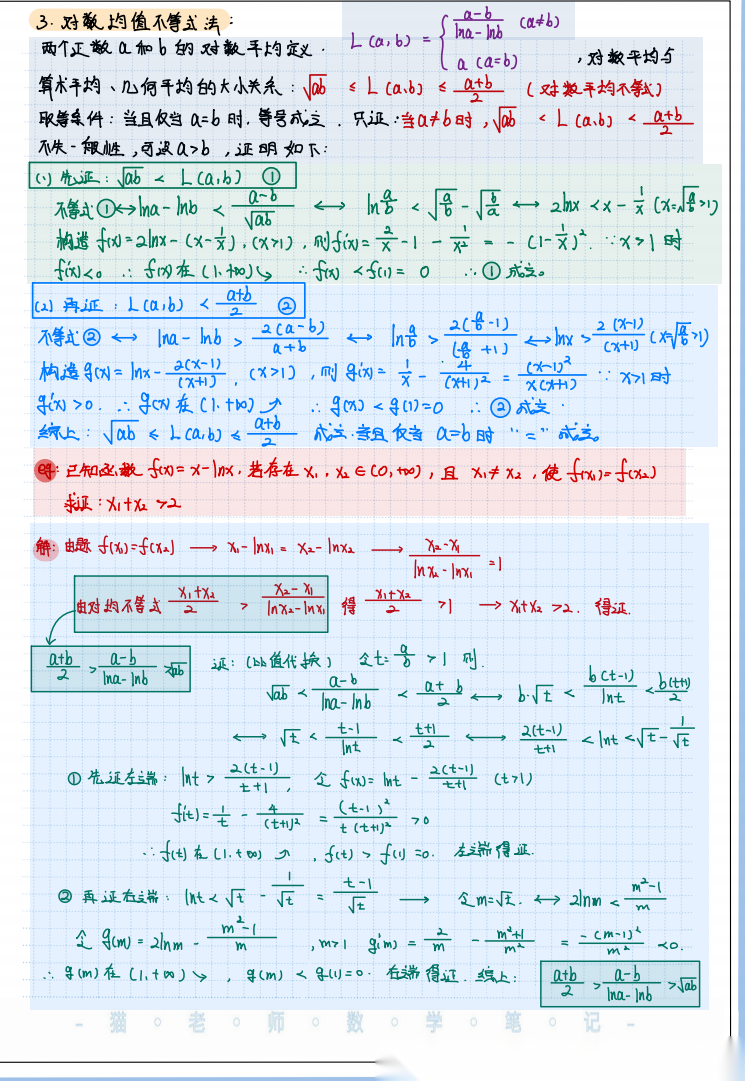 3. 对数均值不等式法:
两个正数 a 和 b 的对数平均定义. L(a,b) = { (a-b)/(lna-lnb) (a≠b) ; a (a=b) , 对数平均与
算术平均、几何平均的大小关系: √ab ≤ L(a,b) ≤ (a+b)/2 (对数平均不等式)
取等条件: 当且仅当 a=b 时, 等号成立. 只证: 当a≠b时, √ab < L(a,b) < (a+b)/2
不失一般性, 可设 a>b, 证明如下:
(1) 先证: √ab < L(a,b) ①
不等式①⟷lna-lnb < (a-b)/√ab ⟷ ln(a/b) < √(a/b) - √(b/a) ⟷ 2lnx < x - 1/x (x=√(a/b)>1)
构造 f(x)=2lnx-(x-1/x), (x>1), 则f'(x)= 2/x - 1 - 1/x² = -(1-1/x)². ∵ x>1 时
f'(x)<0 ∴ f(x)在(1,+∞)↘ ∴ f(x) < f(1) = 0 ∴ ① 成立。
(2) 再证: L(a,b) < (a+b)/2 ②
不等式② ⟷ lna-lnb > 2(a-b)/(a+b) ⟷ ln(a/b) > 2(a/b-1)/(a/b+1) ⟷ lnx > 2(x-1)/(x+1) (x=√(a/b)>1)
构造 g(x)= lnx - 2(x-1)/(x+1), (x>1), 则 g'(x)= 1/x - 4/(x+1)² = (x-1)²/x(x+1) ∵ x>1时
g'(x)>0. ∴ g(x)在(1,+∞)↗ ∴ g(x) < g(1)=0 ∴ ②成立.
综上: √ab ≤ L(a,b) ≤ (a+b)/2 成立.当且仅当 a=b 时 "=" 成立。
: 已知函数 f(x)= x-lnx, 若存在 x₁, x₂ ∈(0,+∞), 且 x₁≠x₂, 使 f(x₁)=f(x₂)
求证: x₁+x₂ >2
解: 由题 f(x₁)=f(x₂) ⟶ x₁-lnx₁ = x₂-lnx₂ ⟶ (x₂-x₁)/(lnx₂-lnx₁) =1
由对均不等式 (x₁+x₂)/2 > (x₂-x₁)/(lnx₂-lnx₁) 得 (x₁+x₂)/2 >1 ⟶ x₁+x₂ >2. 得证.
(a+b)/2 > (a-b)/(lna-lnb) > √ab 证: (比值代换) 令t= a/b >1 则.
√ab < (a-b)/(lna-lnb) < (a+b)/2 ⟷ b·√t < b(t-1)/lnt < b(t+1)/2
⟷ √t < (t-1)/lnt < (t+1)/2 ⟷ 2(t-1)/(t+1) < lnt < √t - 1/√t
① 先证左端: lnt > 2(t-1)/(t+1), 令 f(x)= lnt - 2(t-1)/(t+1) (t>1)
f'(t)= 1/t - 4/(t+1)² = (t-1)²/t(t+1)² >0
∴ f(t) 在(1,+∞)↗, f(t) > f(1) =0. 左端得证.
② 再证右端: lnt < √t - 1/√t = (t-1)/√t ⟶ 令m=√t. ⟷ 2lnm < (m²-1)/m
令 g(m) = 2lnm - (m²-1)/m, m>1 g'(m) = 2/m - (m²+1)/m² = -(m-1)²/m² <0.
∴ g(m)在(1,+∞)↘, g(m) < g(1)=0. 右端得证. 综上: (a+b)/2 > (a-b)/(lna-lnb) > √ab
- 猫 。 老 。 师 。 数 。 学 。 笔 。 记 -